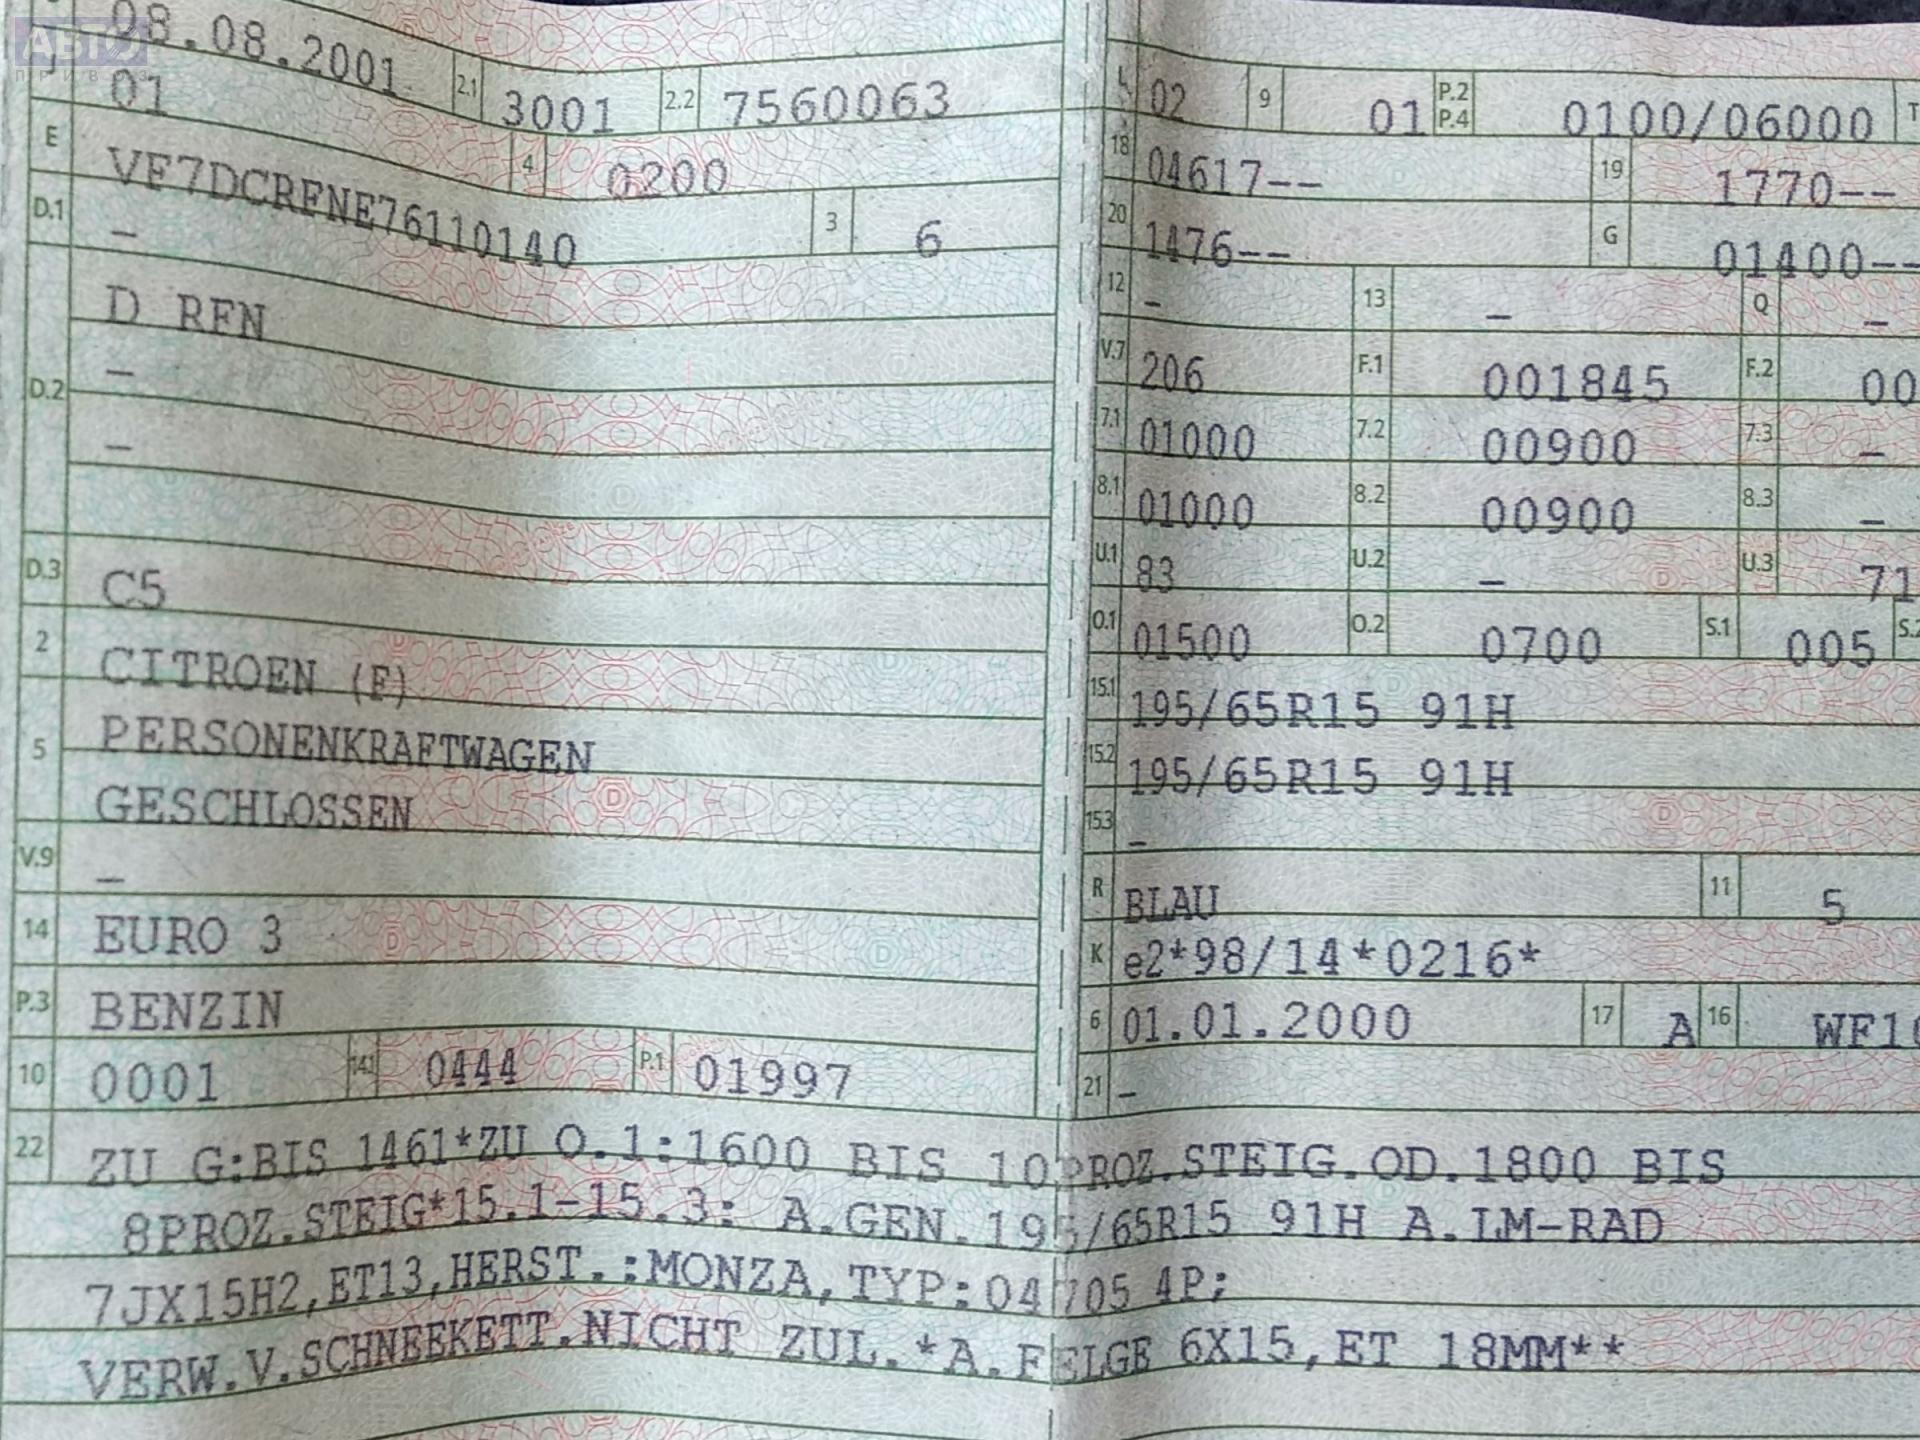 АВТО
ПРИВОЗ
08.08.2001 2.1 3001 2.2 7560063
J 01 4 0200
E VF7DCRFNE76110140 3 6
D.1 –
D RFN
D.2 –
–
D.3 C5
2 CITROEN (F)
5 PERSONENKRAFTWAGEN
GESCHLOSSEN
V.9 –
14 EURO 3
P.3 BENZIN
10 0001 14.1 0444 P.1 01997
L 02 9 01 P.2 P.4 0100/06000 T
18 04617-- 19 1770--
20 1476-- G 01400--
12 – 13 – Q –
V.7 206 F.1 001845 F.2 00
7.1 01000 7.2 00900 7.3 –
8.1 01000 8.2 00900 8.3 –
U.1 83 U.2 – U.3 71
O.1 01500 O.2 0700 S.1 005 S.2
15.1 195/65R15 91H
15.2 195/65R15 91H
15.3 –
R BLAU 11 5
K e2*98/14*0216*
6 01.01.2000 17 A 16 WF10
21 –
22 ZU G:BIS 1461*ZU O.1:1600 BIS 10PROZ.STEIG.OD.1800 BIS
8PROZ.STEIG*15.1-15.3: A.GEN.195/65R15 91H A.LM-RAD
7JX15H2,ET13,HERST.:MONZA,TYP:04705 4P;
VERW.V.SCHNEEKETT.NICHT ZUL.*A.FELGE 6X15,ET 18MM**